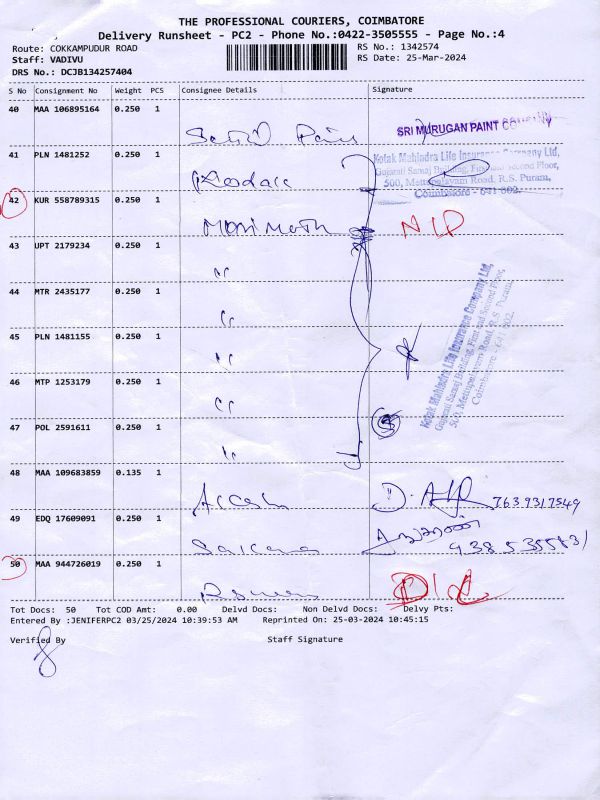 THE PROFESSIONAL COURIERS, COIMBATORE
Delivery Runsheet - PC2 - Phone No.:0422-3505555 - Page No.:4
Route: COKKAMPUDUR ROAD
RS No.: 1342574
Staff: VADIVU
RS Date: 25-Mar-2024
DRS No.: DCJB134257404
S No Consignment No Weight PCS Consignee Details Signature
40 MAA 106895164 0.250 1
SRI MURUGAN PAINT COMPANY
41 PLN 1481252 0.250 1
Kotak Mahindra Life Insurance Company Ltd,
Gujarati Samaj Building, First and Second Floor,
500, Mettupalayam Road, R.S. Puram,
Coimbatore - 641 002.
42 KUR 558789315 0.250 1
N/D
43 UPT 2179234 0.250 1
"
44 MTR 2435177 0.250 1
"
Kotak Mahindra Life Insurance Company Ltd,
Gujarati Samaj Building, First and Second Floor,
500, Mettupalayam Road, R.S. Puram,
Coimbatore - 641 002.
45 PLN 1481155 0.250 1
"
46 MTP 1253179 0.250 1
"
47 POL 2591611 0.250 1
"
48 MAA 109683859 0.135 1
7639317549
49 EDQ 17609091 0.250 1
50 MAA 944726019 0.250 1
D/L
Tot Docs: 50 Tot COD Amt: 0.00 Delvd Docs: Non Delvd Docs: Delvy Pts:
Entered By :JENIFERPC2 03/25/2024 10:39:53 AM Reprinted On: 25-03-2024 10:45:15
Verified By Staff Signature